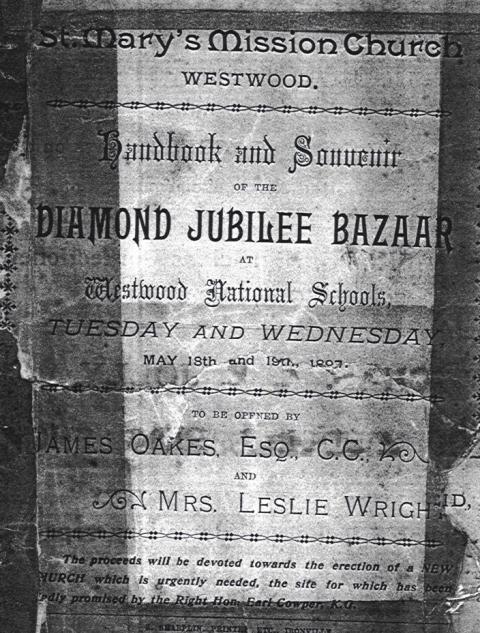 St. Mary's Mission Church
WESTWOOD.
Handbook and Souvenir
OF THE
DIAMOND JUBILEE BAZAAR
AT
Westwood National Schools,
TUESDAY AND WEDNESDAY
MAY 18th and 19th, 1897.
TO BE OPENED BY
JAMES OAKES, ESQ., C.C.,
AND
MRS. LESLIE WRIGH
The proceeds will be devoted towards the erection of a NEW
CHURCH which is urgently needed, the site for which has been
promised by the Right Hon. Earl Cowper, K.G.
PRINTER ETC. IRONVILLE